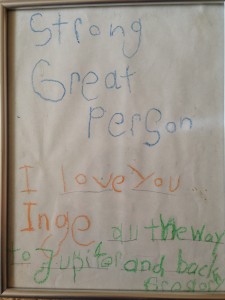 Strong
Great
Person
I love you
Inge all the way
to Jupiter and back